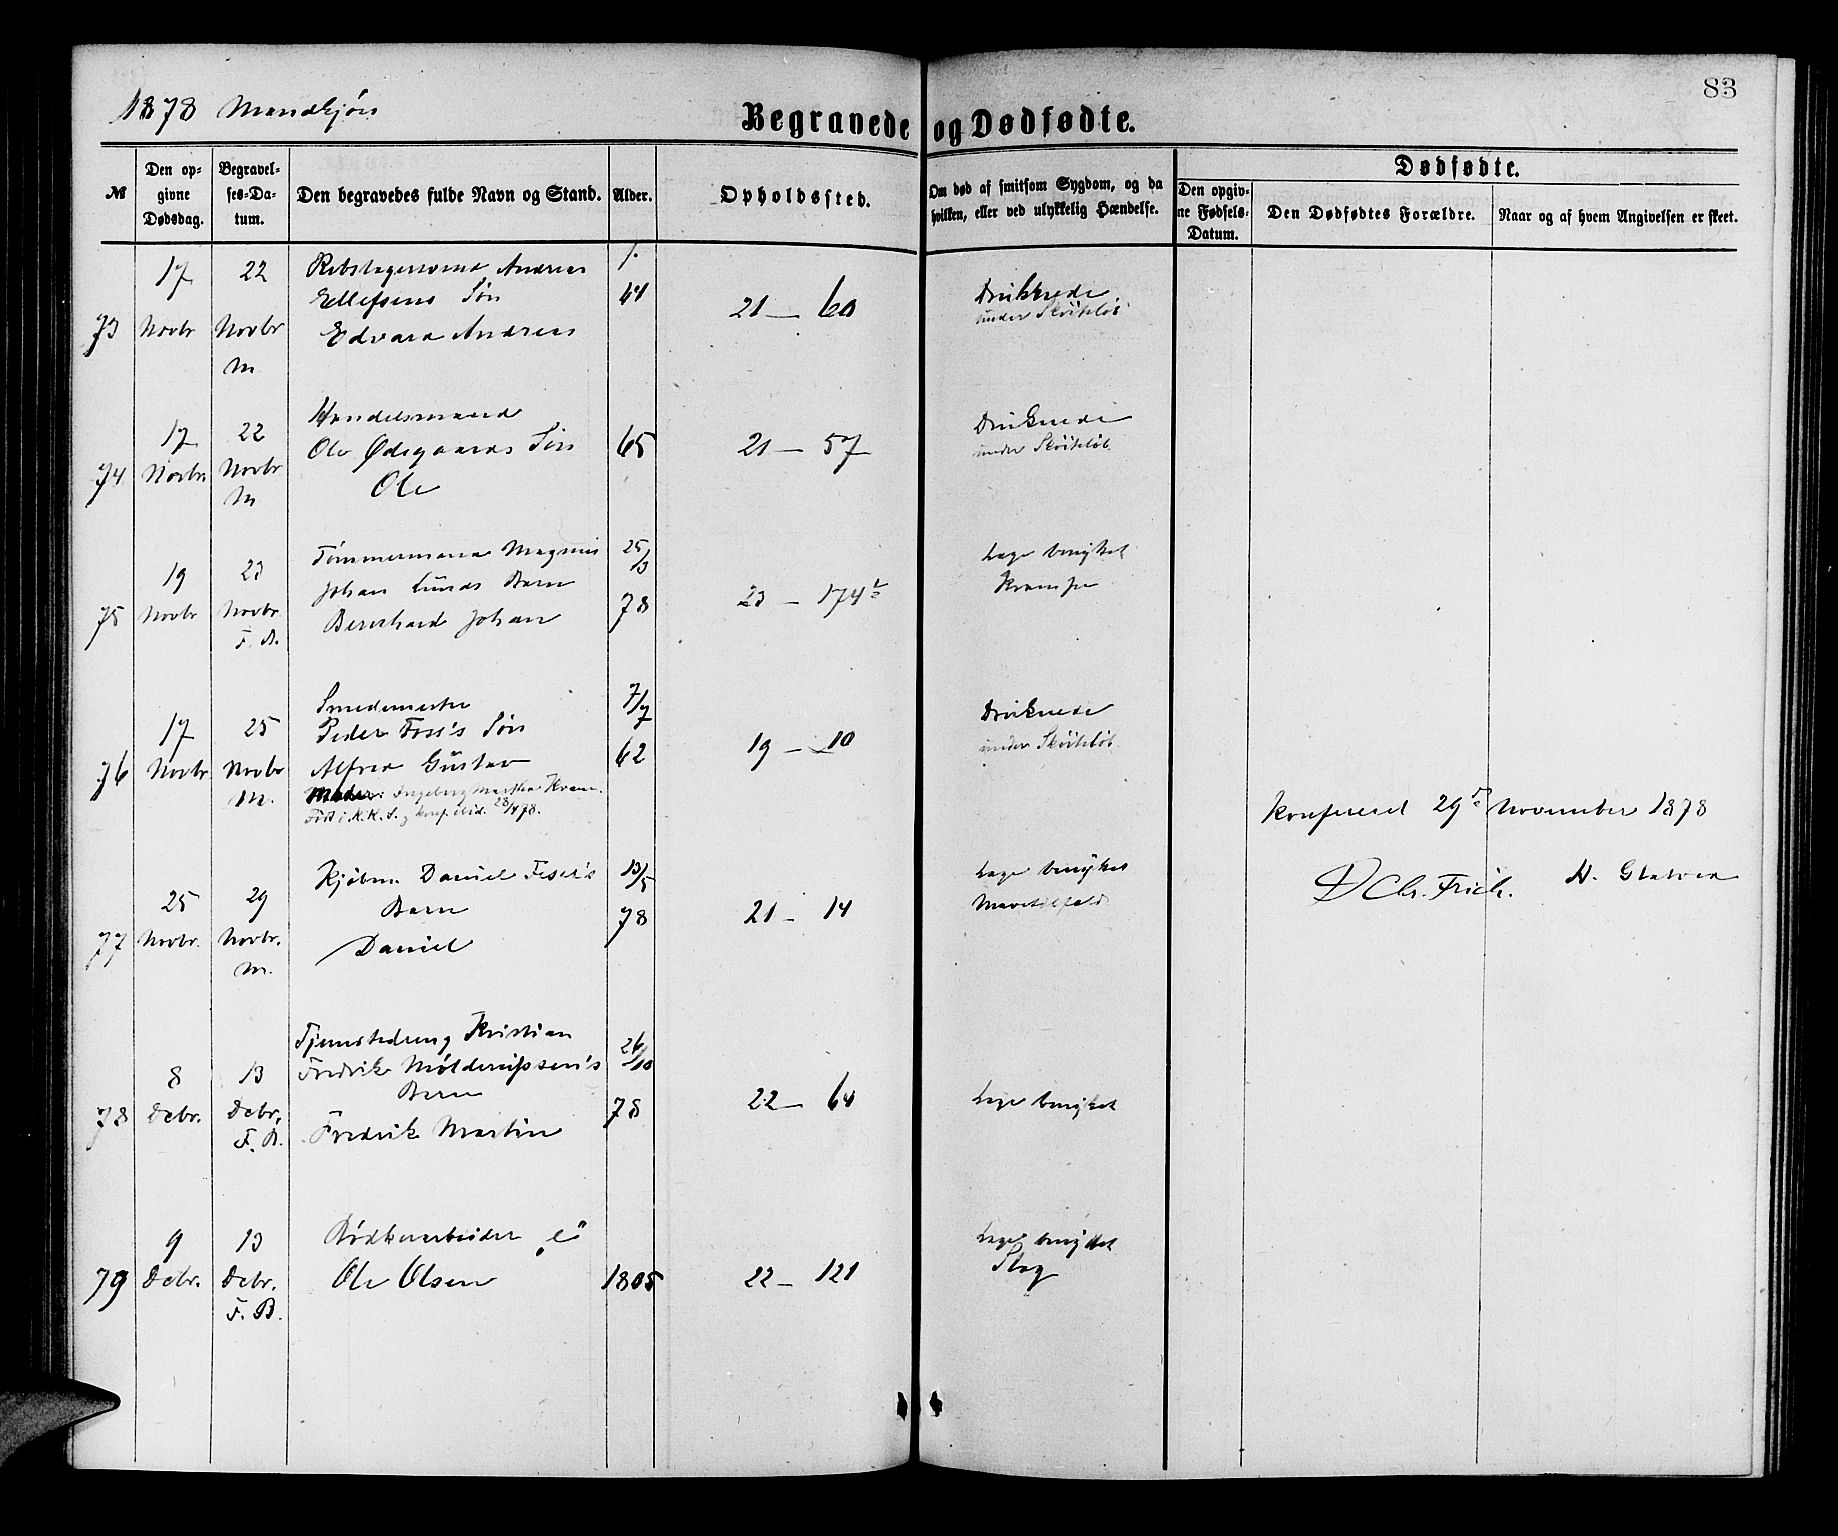 83
1878 Mandkjøn
Begravede og Dødfødte.
№
Den op-
givne
Dødsdag.
Begravel-
ses-Da-
tum.
Den begravedes fulde Navn og Stand.
Alder.
Opholdssted.
Om død af smitsom Sygdom, og da
hvilken, eller ved ulykkelig Hændelse.
Dødfødte.
Den opgiv-
ne Fødsels-
Datum.
Den Dødfødtes Forældre.
Naar og af hvem Angivelsen er skeet.
73
17
Novbr
22
Novbr
M
Andreas
Ellefsens Søn
Edvard Andreas
64
21 — 60
Druknede
under Skøiteløb
74
17
Novbr
22
Novbr
M
Handelsmand
Ole Ødegaards Søn
Ole
65
21 — 57
Druknede
under Skøiteløb
75
19
Novbr
23
Novbr
F. B.
Tømmermand Magnus
Johan Lunds Barn
Bernhard Johan
25/3
78
23 — 174
Læge benyttet
Krampe
76
17
Novbr
25
Novbr
M.
Smedemester
Peder Foss's Søn
Alfred Gustav
Moder: Ingeborg Martha
Født i K. K. S. og konf. ibid. 28/4 78.
7/7
62
19 — 10
Druknede
under Skøiteløb
Konfereret 29 November 1878
D Chr. Frich.
77
25
Novbr.
29
Novbr.
M.
Kjøbm. Daniel
Barn
Daniel
13/5
78
21 — 14
Læge benyttet
78
8
Debr.
13
Debr.
F. B.
Tjenestedreng Kristian
Fredrik
Barn
Fredrik Martin
26/10
78
22 — 64
Læge benyttet
79
9
Debr.
13
Debr.
F. B.
Bødkerarbeider „e"
Ole Olsen
1805
22 — 121
Læge benyttet
Slag